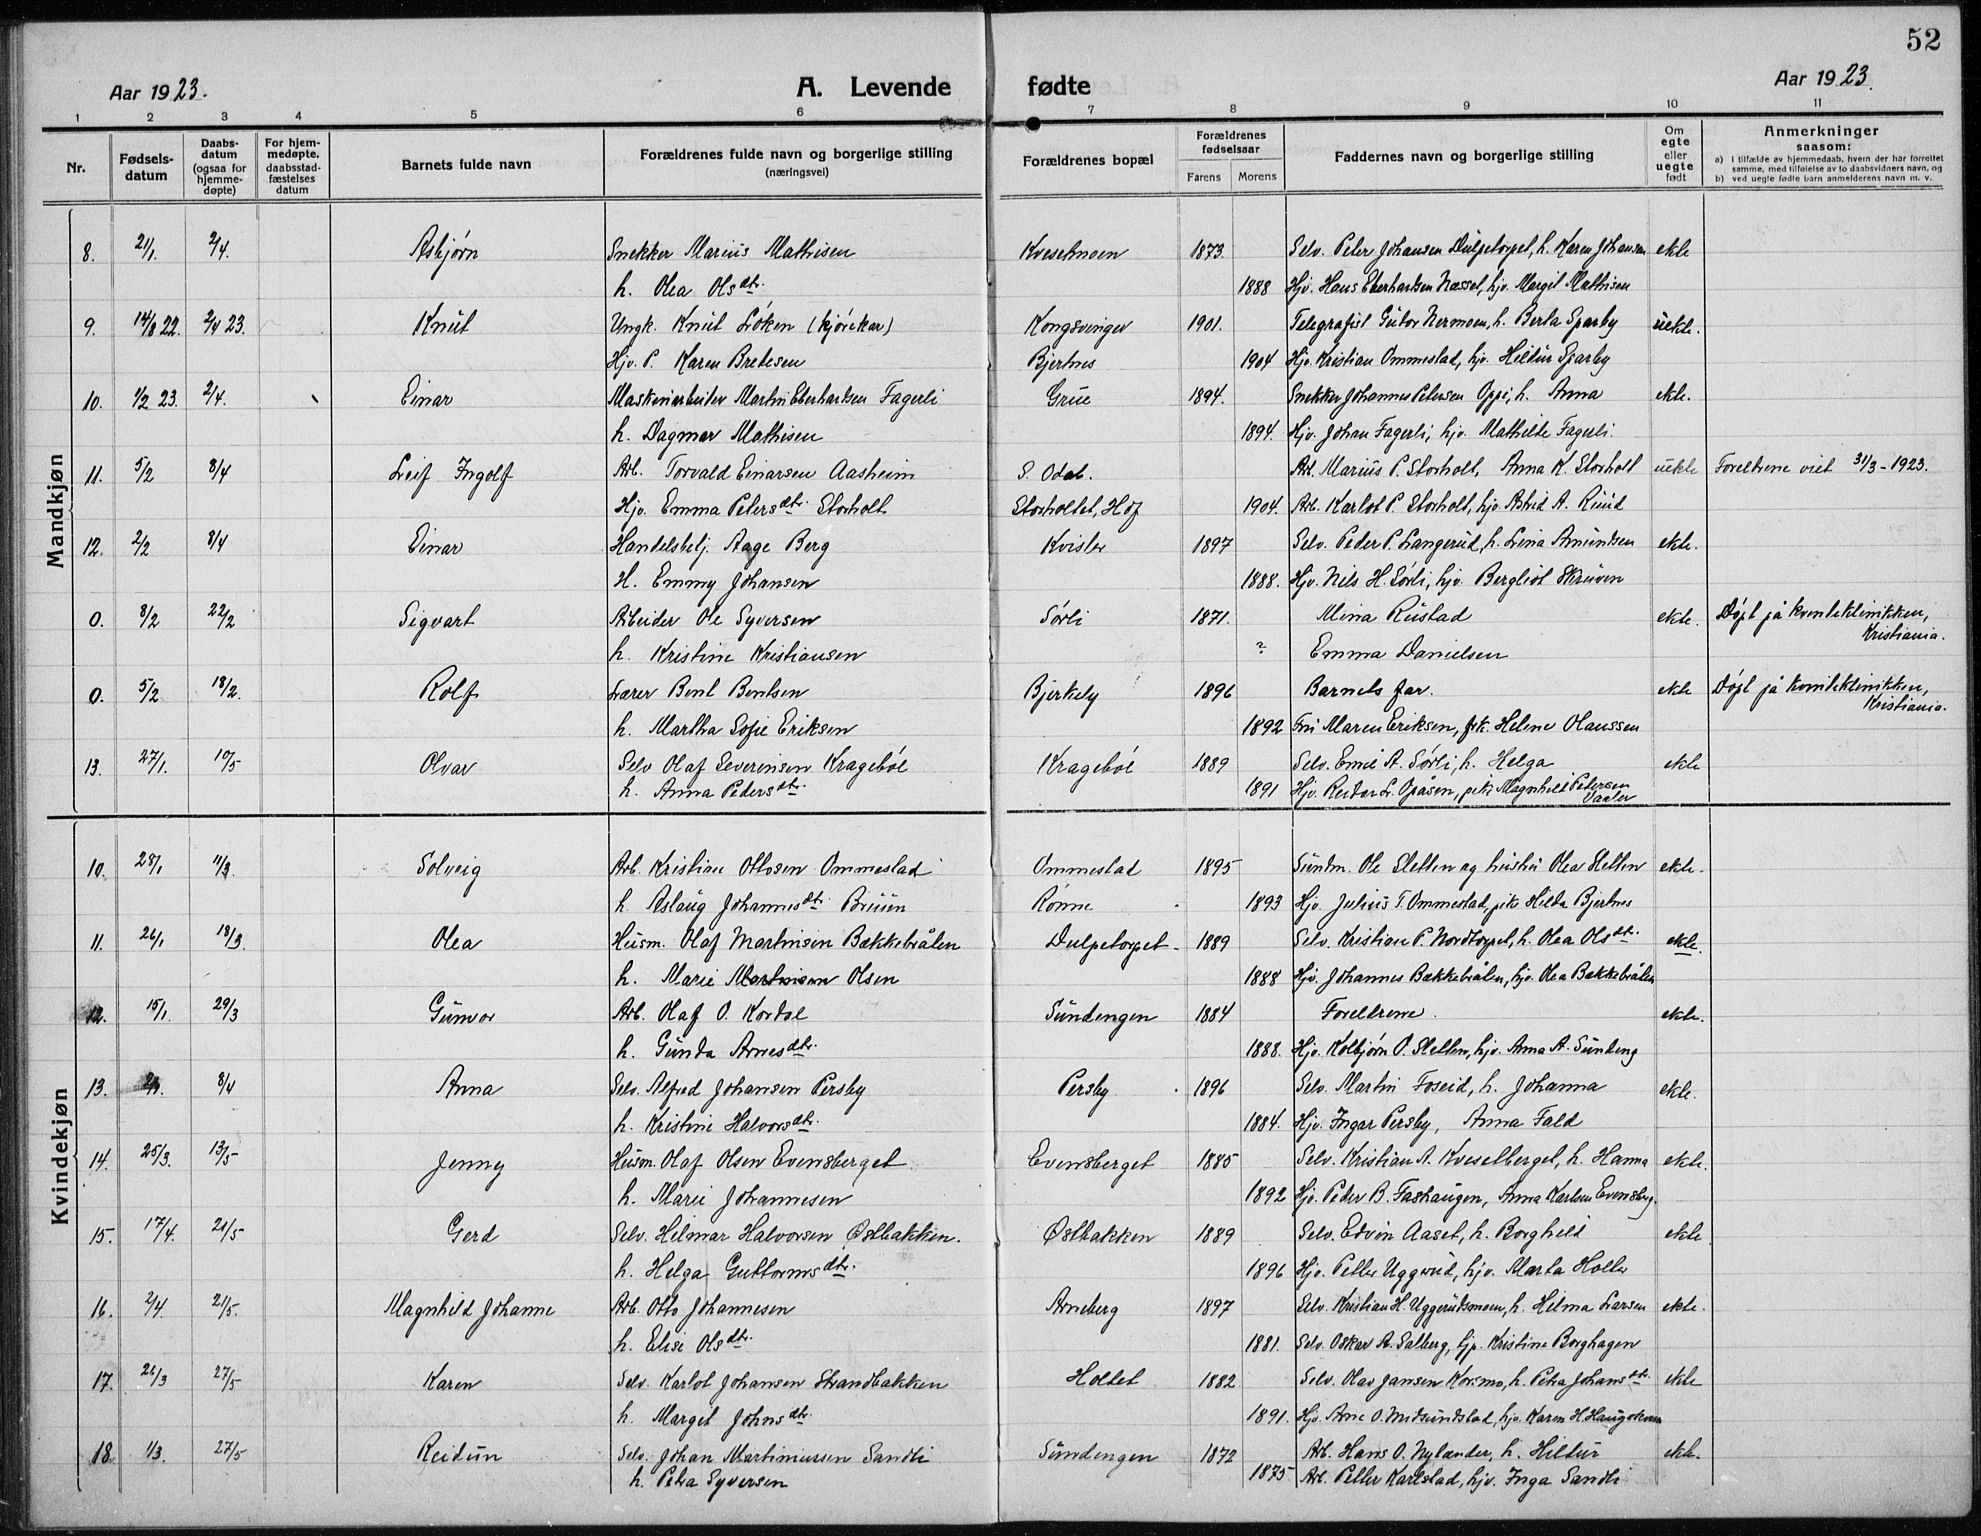 52
Aar 1923. A. Levende fødte Aar 1923.
1 2 3 4 5 6 7 8 9 10 11
Nr. Fødselsdatum Daabsdatum (ogsaa for hjemmedøpte) For hjemmedøpte, daabsstadfæstelses datum Barnets fulde navn Forældrenes fulde navn og borgerlige stilling (næringsvei) Forældrenes bopæl Forældrenes fødselsaar Farens Morens Faddernes navn og borgerlige stilling Om egte eller uegte født Anmerkninger saasom:
a) i tilfælde av hjemmedaab, hvem der har forrettet samme, med tilføielse av to daabsvidners navn, og
b) ved uegte fødte barn anmelderens navn m. v.
Mandkjøn
8. 21/1. 2/4. Asbjørn Snekker Marius Mathisen Kvesetmoen 1873. Selv. Peter Johansen Dulpetorpet, h. Karen Johansen ekte
h. Olea Olsdtr. 1888 Hjv. Hans Eberhartsen Næsset, hjv. Margit Mathisen
9. 14/8 22. 2/4 23. Knut Ungk. Knut Løken (kjørekar) Kongsvinger 1901. Telegrafist Gutor Nermoen, h. Berta Sparby uekte.
Hjv. P. Karen Bredesen Bjertnes 1904 Hjv. Kristian Ommestad, hjv. Hildur Sparby
10. 1/2 23. 2/4. Einar Maskinarbeider Martin Eberhartsen Fagerli Grue 1894. Snekker Johannes Petersen Oppi, h. Anna ekte.
h. Dagmar Mathisen 1894. Hjv. Johan Fagerli, hjv. Mathilde Fagerli.
11. 5/2 8/4 Leif Ingolf Arb. Torvald Einarsen Aasheim S. Odal. Arb. Marius P. Storholt, Anna K. Storholt uekte Foreldrene viet 31/3-1923.
Hjv. Emma Petersdtr. Storholt Storholtet, Hof 1904. Arb. Karlot P. Storholt, hjv. Astrid A. Ruud
12. 2/2 8/4 Einar Handelsbetj. Aage Berg Kvisler 1897 Selv. Peder P. Langerud, h. Lina Amundsen ekte.
H. Emmy Johansen 1888. Hjv. Nils H. Sørli, hjv. Bergliot Skruven
0. 8/2 22/2 Sigvart Arbeider Ole Syversen Sørli 1871. Mina Rustad ekte. Døpt på kvinneklinikken,
Kristiania.
h. Kristine Kristiansen ? Emma Danielsen
0. 5/2 18/2. Rolf Lærer Bent Bentsen Bjerkely 1896 Barnets far. ekte Døpt på kvinneklinikken,
Kristiania.
h. Martha Sofie Eriksen 1892 Fru Maren Eriksen, frk. Helene Olaussen
13. 27/1. 10/5 Olvar Selv Olaf Severinsen Kragebøl Kragebøl 1889 Selv. Emil A. Sørli, h. Helga ekte
h. Anna Pedersdtr. 1891 Hjv. Reidar L. Opåsen, pike Magnhild Petersen
Vaaler
Kvindekjøn
10. 28/1 11/3. Solveig Arb. Kristian Ottosen Ommestad Ommestad 1895 Sundm. Ole Sletten og hustru Olea Sletten ekte.
h Aslaug Johannesdtr. Bruun Rønne 1893 Hjv. Julius T. Ommestad, pike Hilda Bjertnes
11. 26/1 18/3. Olea Husm. Olaf Martinsen Bækkebråten Dulpetorpet 1889 Selv. Kristian P. Nordtorpet, h. Olea Olsdtr. ekte.
h. Marie Martinsen Olsen 1888 Hjv. Johannes Bækkebråten, hjv. Olea Bækkebråten
12. 15/1. 29/3 Gunvor Arb. Olaf O. Kordal Sundengen 1884 Foreldrene. ekte.
h. Gunda Arnesdtr. 1888. Hjv. Kolbjørn O. Sletten, hjv. Anna A. Sundeng
13. 8/4 Anna Selv. Alfred Johansen Persby Persby 1896 Selv. Martin Foseid, h. Johanna ekte.
h. Kristine Halvorsdtr. 1884. Hjv. Ingar Persby, Anna Fald
14. 25/3. 13/5 Jenny Husm. Olaf Olsen Evensberget Evensberget 1885 Selv. Kristian A. Kvesetberget, h. Hanna ekte.
h. Marie Johannesen 1892 Hjv. Peder B. Fashaugen, Anna Karlsen Evensberg.
15. 17/4. 21/5 Gerd Selv. Hilmar Halvorsen Østbakken. Østbakken 1889 Selv. Edvin Aaset, h. Borghild ekte
h. Helga Guttormsdtr. 1896 Hjv. Petter Uggerud, hjv. Marta Holter
16. 2/4 21/5. Magnhild Johanne Arb. Otto Johannesen Arneberg 1897 Selv. Kristian H. Uggerudsmoen, h. Hilma Larsen ekte.
h. Elise Olsdtr. 1881. Selv. Oskar A. Salberg, hjv. Kristine Borghagen
17. 26/3 27/5 Karen Selv. Karlot Johansen Strandbakken Holtet 1882 Selv. Olav Jansen Korsmo, h. Petra Johansdtr. ekte
h. Margit Johnsdtr. 1891. Hjv. Arne O. Midsundstad, hjv. Karen H. Haugskven
18 1/3. 27/5 Reidun Selv. Johan Martinussen Sandli Sundengen 1872 Arb. Hans O. Nylander, h. Hildur ekte.
h. Petra Syversen 1875 Arb. Petter Karlstad, hjv. Inga Sandli